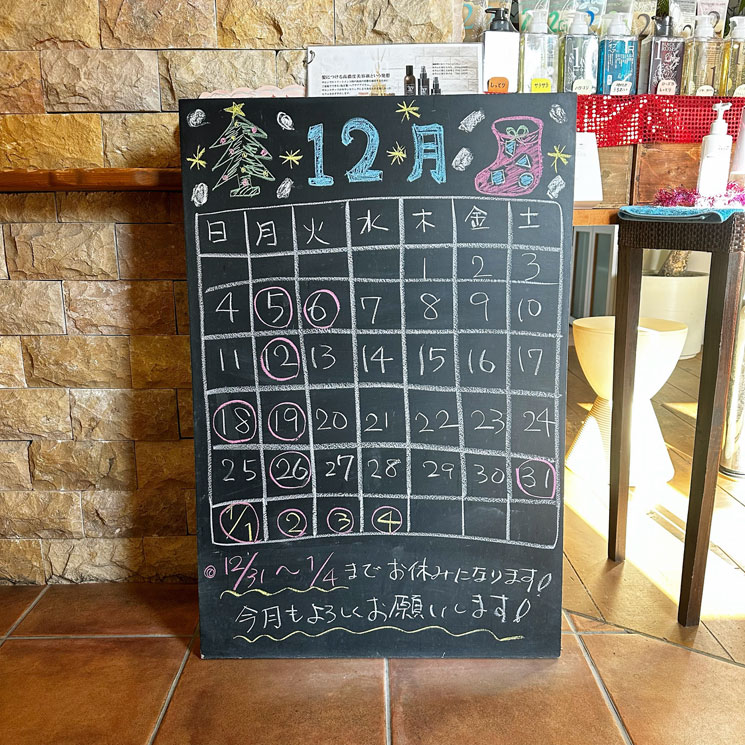 12月
日 月 火 水 木 金 土
1 2 3
4 5 6 7 8 9 10
11 12 13 14 15 16 17
18 19 20 21 22 23 24
25 26 27 28 29 30 31
1/1 2 3 4
◎ 12/31 〜 1/4 までお休みになります!
今月もよろしくお願いします!